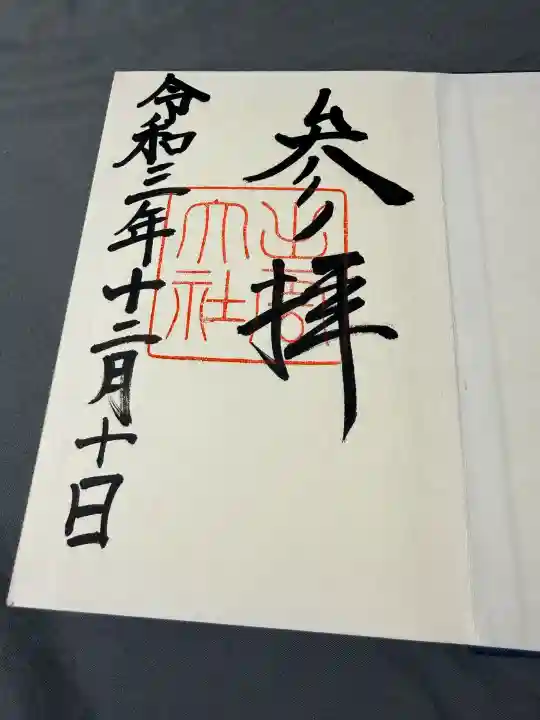 参拝
出雲大社
令和三年十二月十日